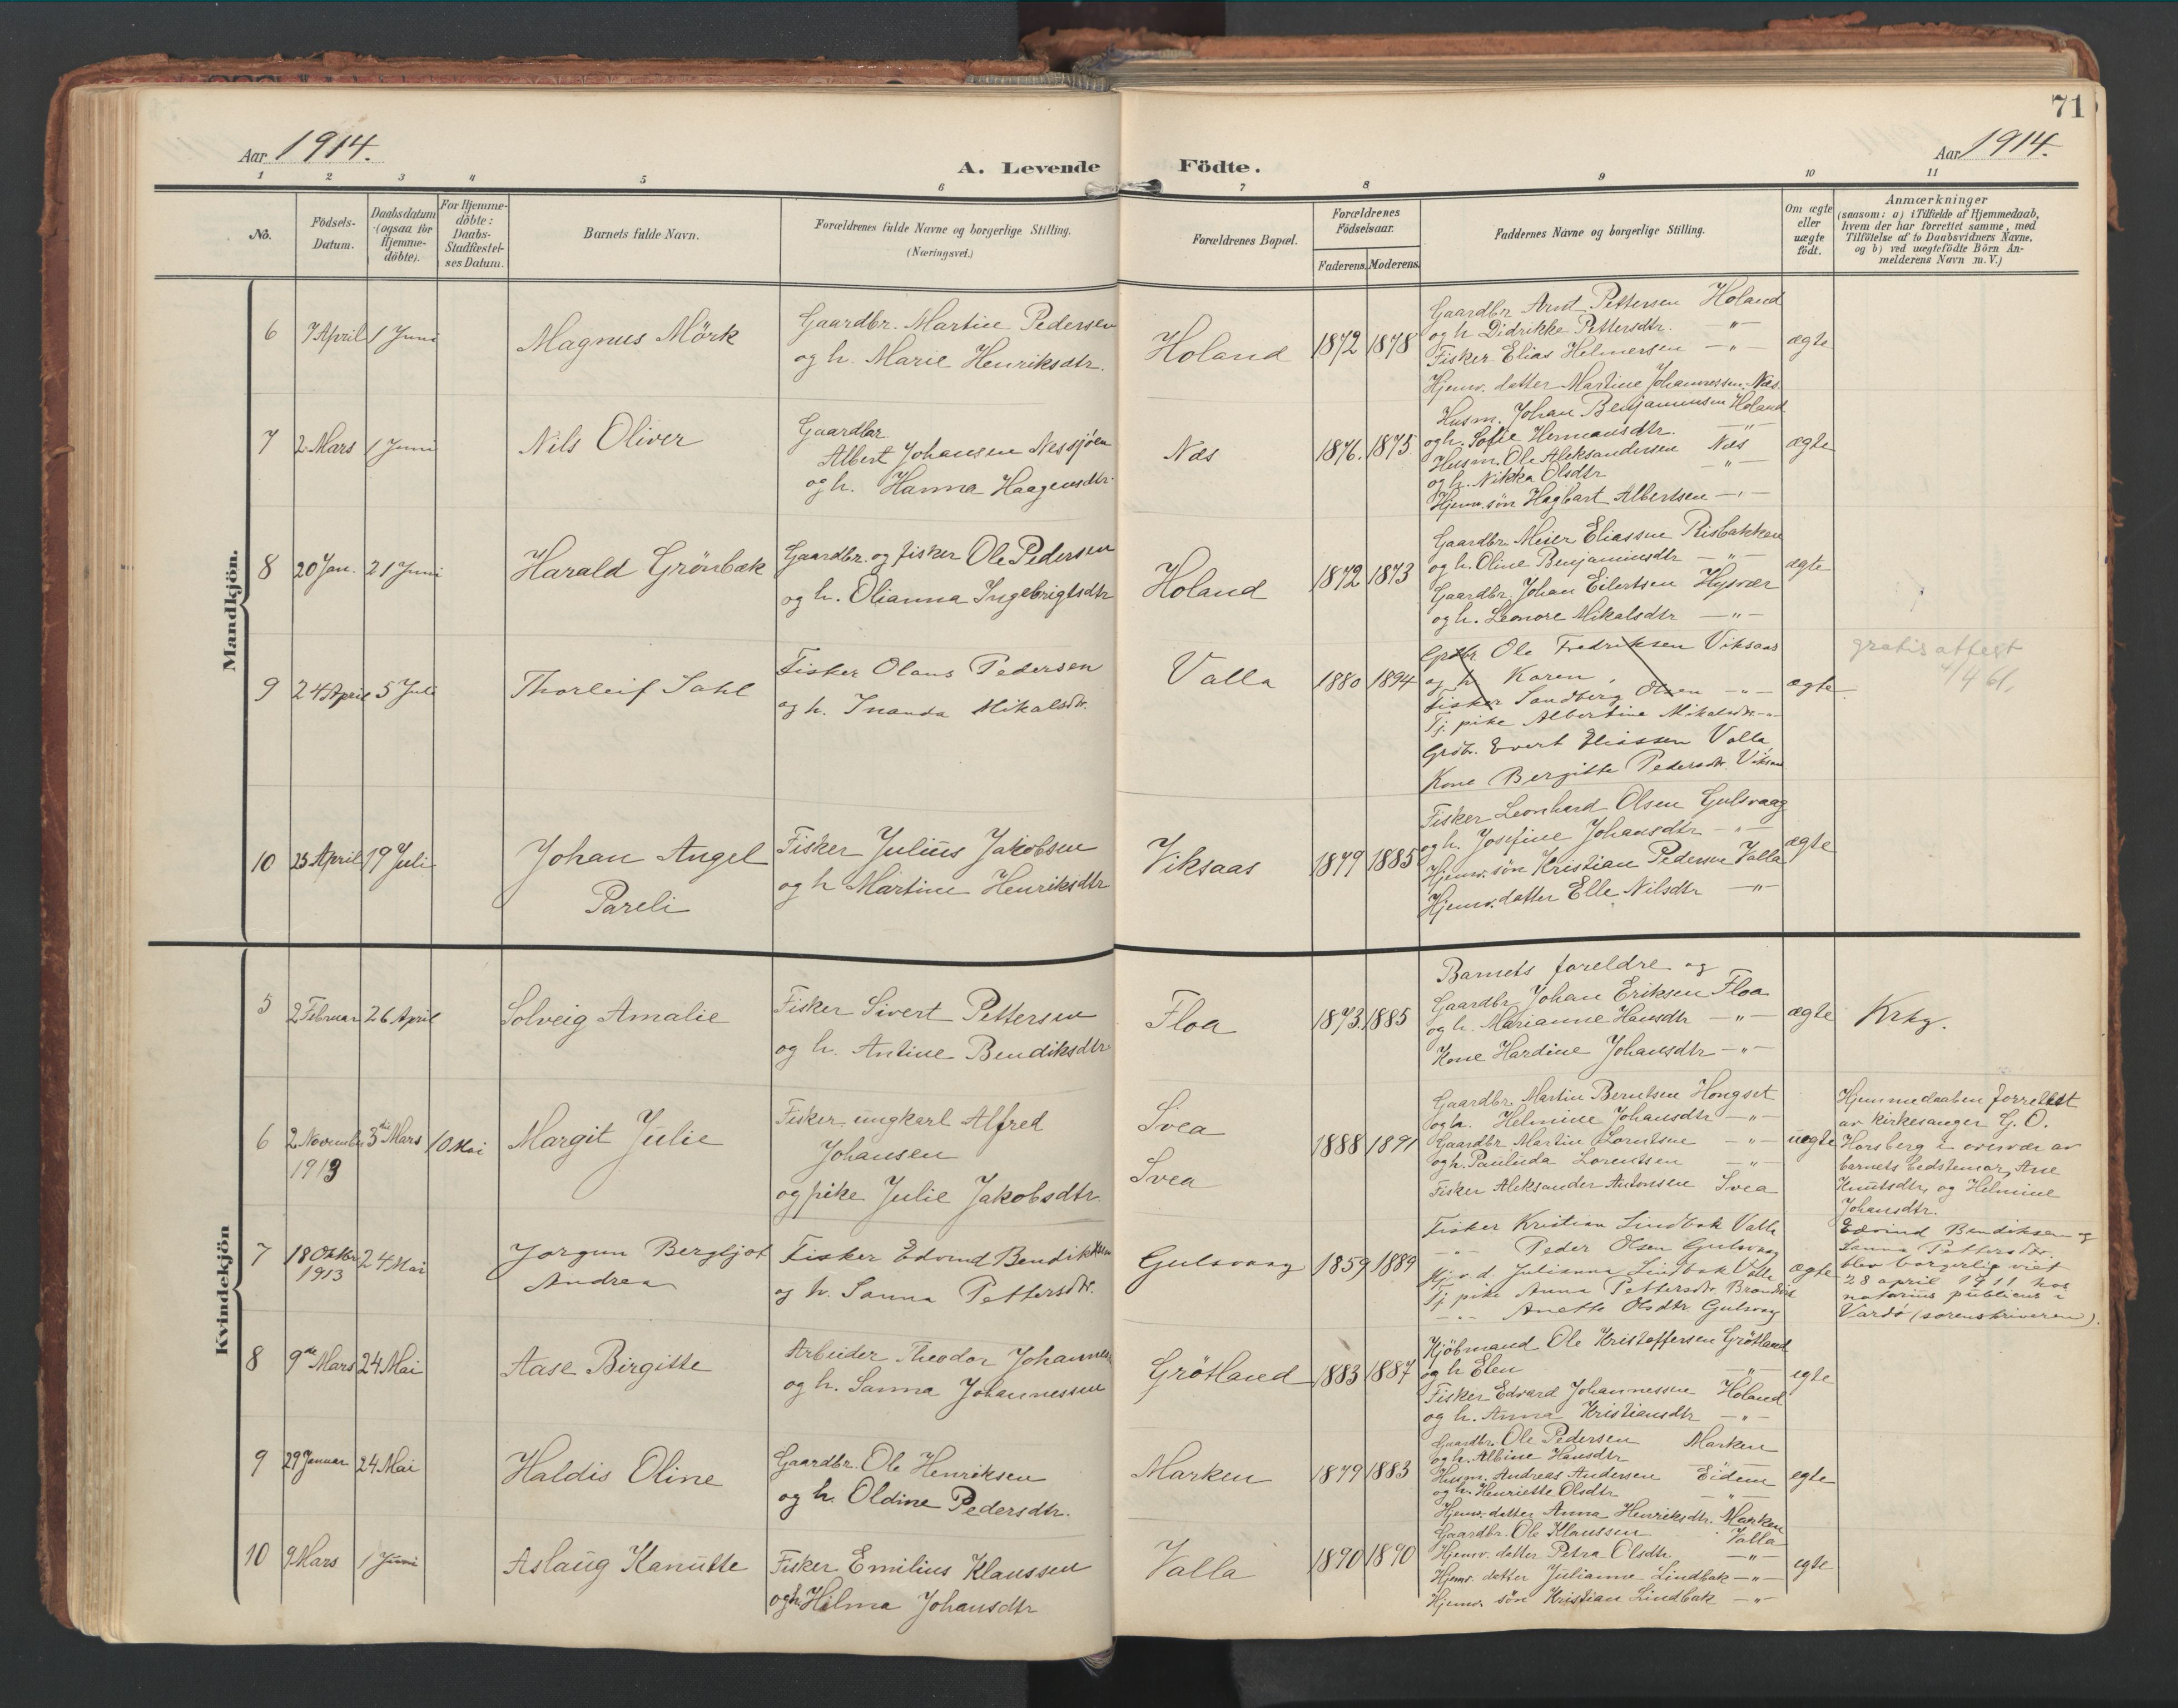 71
Aar 1914.
A. Levende Födte.
Aar 1914.
1 2 3 4 5 6 7 8 9 10 11
No.
Födsels-
Datum.
Daabsdatum
(ogsaa for
Hjemme-
döbte).
For Hjemme-
döbte:
Daabs-
Stadfæstel-
ses Datum.
Barnets fulde Navn.
Forældrenes fulde Navne og borgerlige Stilling.
(Næringsvei.)
Forældrenes Bopæl.
Forældrenes
Födselsaar.
Faderens. Moderens.
Faddernes Navne og borgerlige Stilling.
Om ægte
eller
uægte
födt.
Anmærkninger
(saasom: a) i Tilfælde af Hjemmedaab,
hvem der har forrettet samme, med
Tilföielse af to Daabsvidners Navne,
og b) ved uægtefödte Börn An-
melderens Navn m. V.)
Mandkjön.
6 7 April 1 Juni
Magnus Mörk
Gaardbr. Martin Pedersen
og h. Marie Henriksdtr.
Holand
1872 1878
Gaardbr Arnt Pettersen Holand
og h Didrikke Pettersdtr. —"—
Fisker Elias Helmersen —"—
Hjemv. datter Martine Johannessen Næs.
ægte
7 2 Mars 1 Juni
Nils Oliver
Gaardbr
Albert Johansen Nessjöen
og h. Hanna Haagensdtr.
Næs
1876. 1875
Husm. Johan Benjaminsen Holand
og h. Sofie Hermansdtr. —"—
Husm. Ole Aleksandersen Næs
og h. Nikka Olsdtr —"—
Hjemv. sön Hagbart Albertsen —"—
ægte
8 20 Jan. 21 Juni
Harald Grönbæk
Gaardbr. og fisker Ole Pedersen
og h. Olianna Ingebrigtsdtr
Holand
1872 1873
Gaardbr Meier Eliassen Risbakken
og h. Oline Benjaminsdtr —"—
Gaardbr. Johan Eilertsen Hysvær
og h. Leonore Mikalsdtr —"—
ægte
9 24 April 5 Juli
Thorleif Sahl
Fisker Olaus Pedersen
og h. Inanda Mikalsdtr.
Valla
1880 1894
Grdbr Ole Fredriksen Viksaas
og h Karen "
Fisker Sandberg Olsen —"—
Tj. pike Albertine Mikalsdtr. —"—
Grdbr. Evert Eliassen Valla
Kone Bergitte Pedersdtr. Viksaas
ægte
gratis attest
4/4 61.
10 25 April 19 Juli
Johan Angel
Pareli
Fisker Julius Jakobsen
og h Martine Henriksdtr
Viksaas
1879 1885
Fisker Leonhard Olsen Gulsvaag
og h. Josefine Johansdtr —"—
Hjemv. sön Kristian Pedersen Valla
Hjemv. datter Elle Nilsdtr —"—
ægte
Kvindekjön
5 2 Februar 26 April
Solveig Amalie
Fisker Sivert Pettersen
og h. Antine Bendiksdtr
Floa
1873. 1885
Barnets foreldre og
Gaardbr Johan Eriksen Floa
og h. Marianne Hansdtr —"—
Kone Hardine Johansdtr —"—
ægte
Krkg.
6 2 November 3die Mars 10 Mai
1913
Margit Julie
Fisker, ungkarl Alfred
Johansen
og pike Julie Jakobsdtr.
Svea
Svea
1888 1891
Gaardbr Martin Berntsen Hongset
og h. Helmine Johansdtr —"—
Gaardbr Martin Lorentsen —"—
og h. Paulinda Lorentsen —"—
Fisker Aleksander Antonsen Svea
uegte
Hjemmedaaben forrettet
av kirkesanger G. O.
Horsberg i overvær av
barnets bedstemor, Ane
Knutsdtr, og Helmine
Johansdtr.
7 18 Oktbr 24 Mai
1913
Jorgun Bergljot
Andrea
Fisker Edvind Bendiksen
og h. Sanna Pettersdtr.
Gulsvaag
1859 1889
Fisker Kristian Lindbak Valla
—"— Peder Olsen Gulsvaag
Hj. v. d. Julianna Lindbak Valla
Tj. pike Anna Pettersdtr.
—"— Anette Olsdtr Gulsvaag
ægte
Edvind Bendiksen og
Sanna Pettersdtr.
blev borgerlig viet
28 april 1911 hos
notarius publicus i
Vardö (sorenskriveren).
8 9de Mars 24 Mai
Aase Birgitte
Arbeider Theodor Johannes
og h. Sanna Johannessen
Grötland
1883 1887
Kjöbmand Ole Kristoffersen Grötland
og h Elen —"—
Fisker Edvard Johannessen Holand
og h. Anna Kristiansdtr —"—
egte
9 29 Januar 24 Mai
Haldis Oline
Gaardbr. Ole Henriksen
og h. Oldine Pedersdtr.
Marken
1879 1883
Gaardbr. Ole Pedersen Marken
og h. Albine Hansdtr
Husm. Andreas Andersen Eidem
og h. Henriette Olsdtr —"—
Hjemv. datter Anna Henriksdtr. Marken
egte
10 9 Mars 1 Juni
Aslaug Kanutte
Fisker Emilius Klaussen
og h. Hilma Johansdtr
Valla
1890 1890
Gaardbr. Ole Klaussen Valla
Hjemv. datter Petra Olsdtr —"—
Hjemv. datter Julianne Lindbak —"—
Hjemv. sön Kristian Lindbak —"—
egte